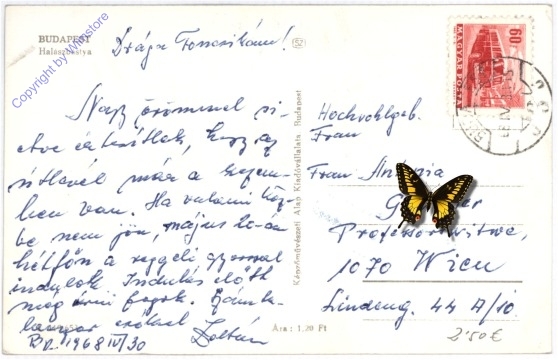 BUDAPEST
Halászbástya
Copyright by whpstore
Drága Foncsikám!
SZ
Nagy örömmel si-
etve értesítlek, hogy az
útlevél már a kezem-
ben van. Ha valami köz-
be nem jön, május 20-án
hétfőn a reggeli gyorssal
indulok. Indulás előtt
még írni fogok. Számta-
lanszor csókol Zoltán
Bp. 1968 IV/30
Képzőművészeti Alap Kiadóvállalata Budapest
Ára: 1,20 Ft
60
MAGYAR POSTA
Hochwohlgeb.
Frau
Frau Antónia
Professorswitwe,
1070 Wien
Lindeng. 44 A/10
2'50€